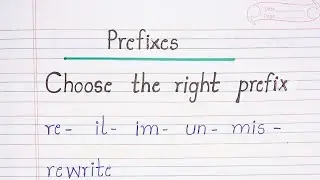 Prefixes
Choose the right prefix
re- il- im- un- mis-
rewrite